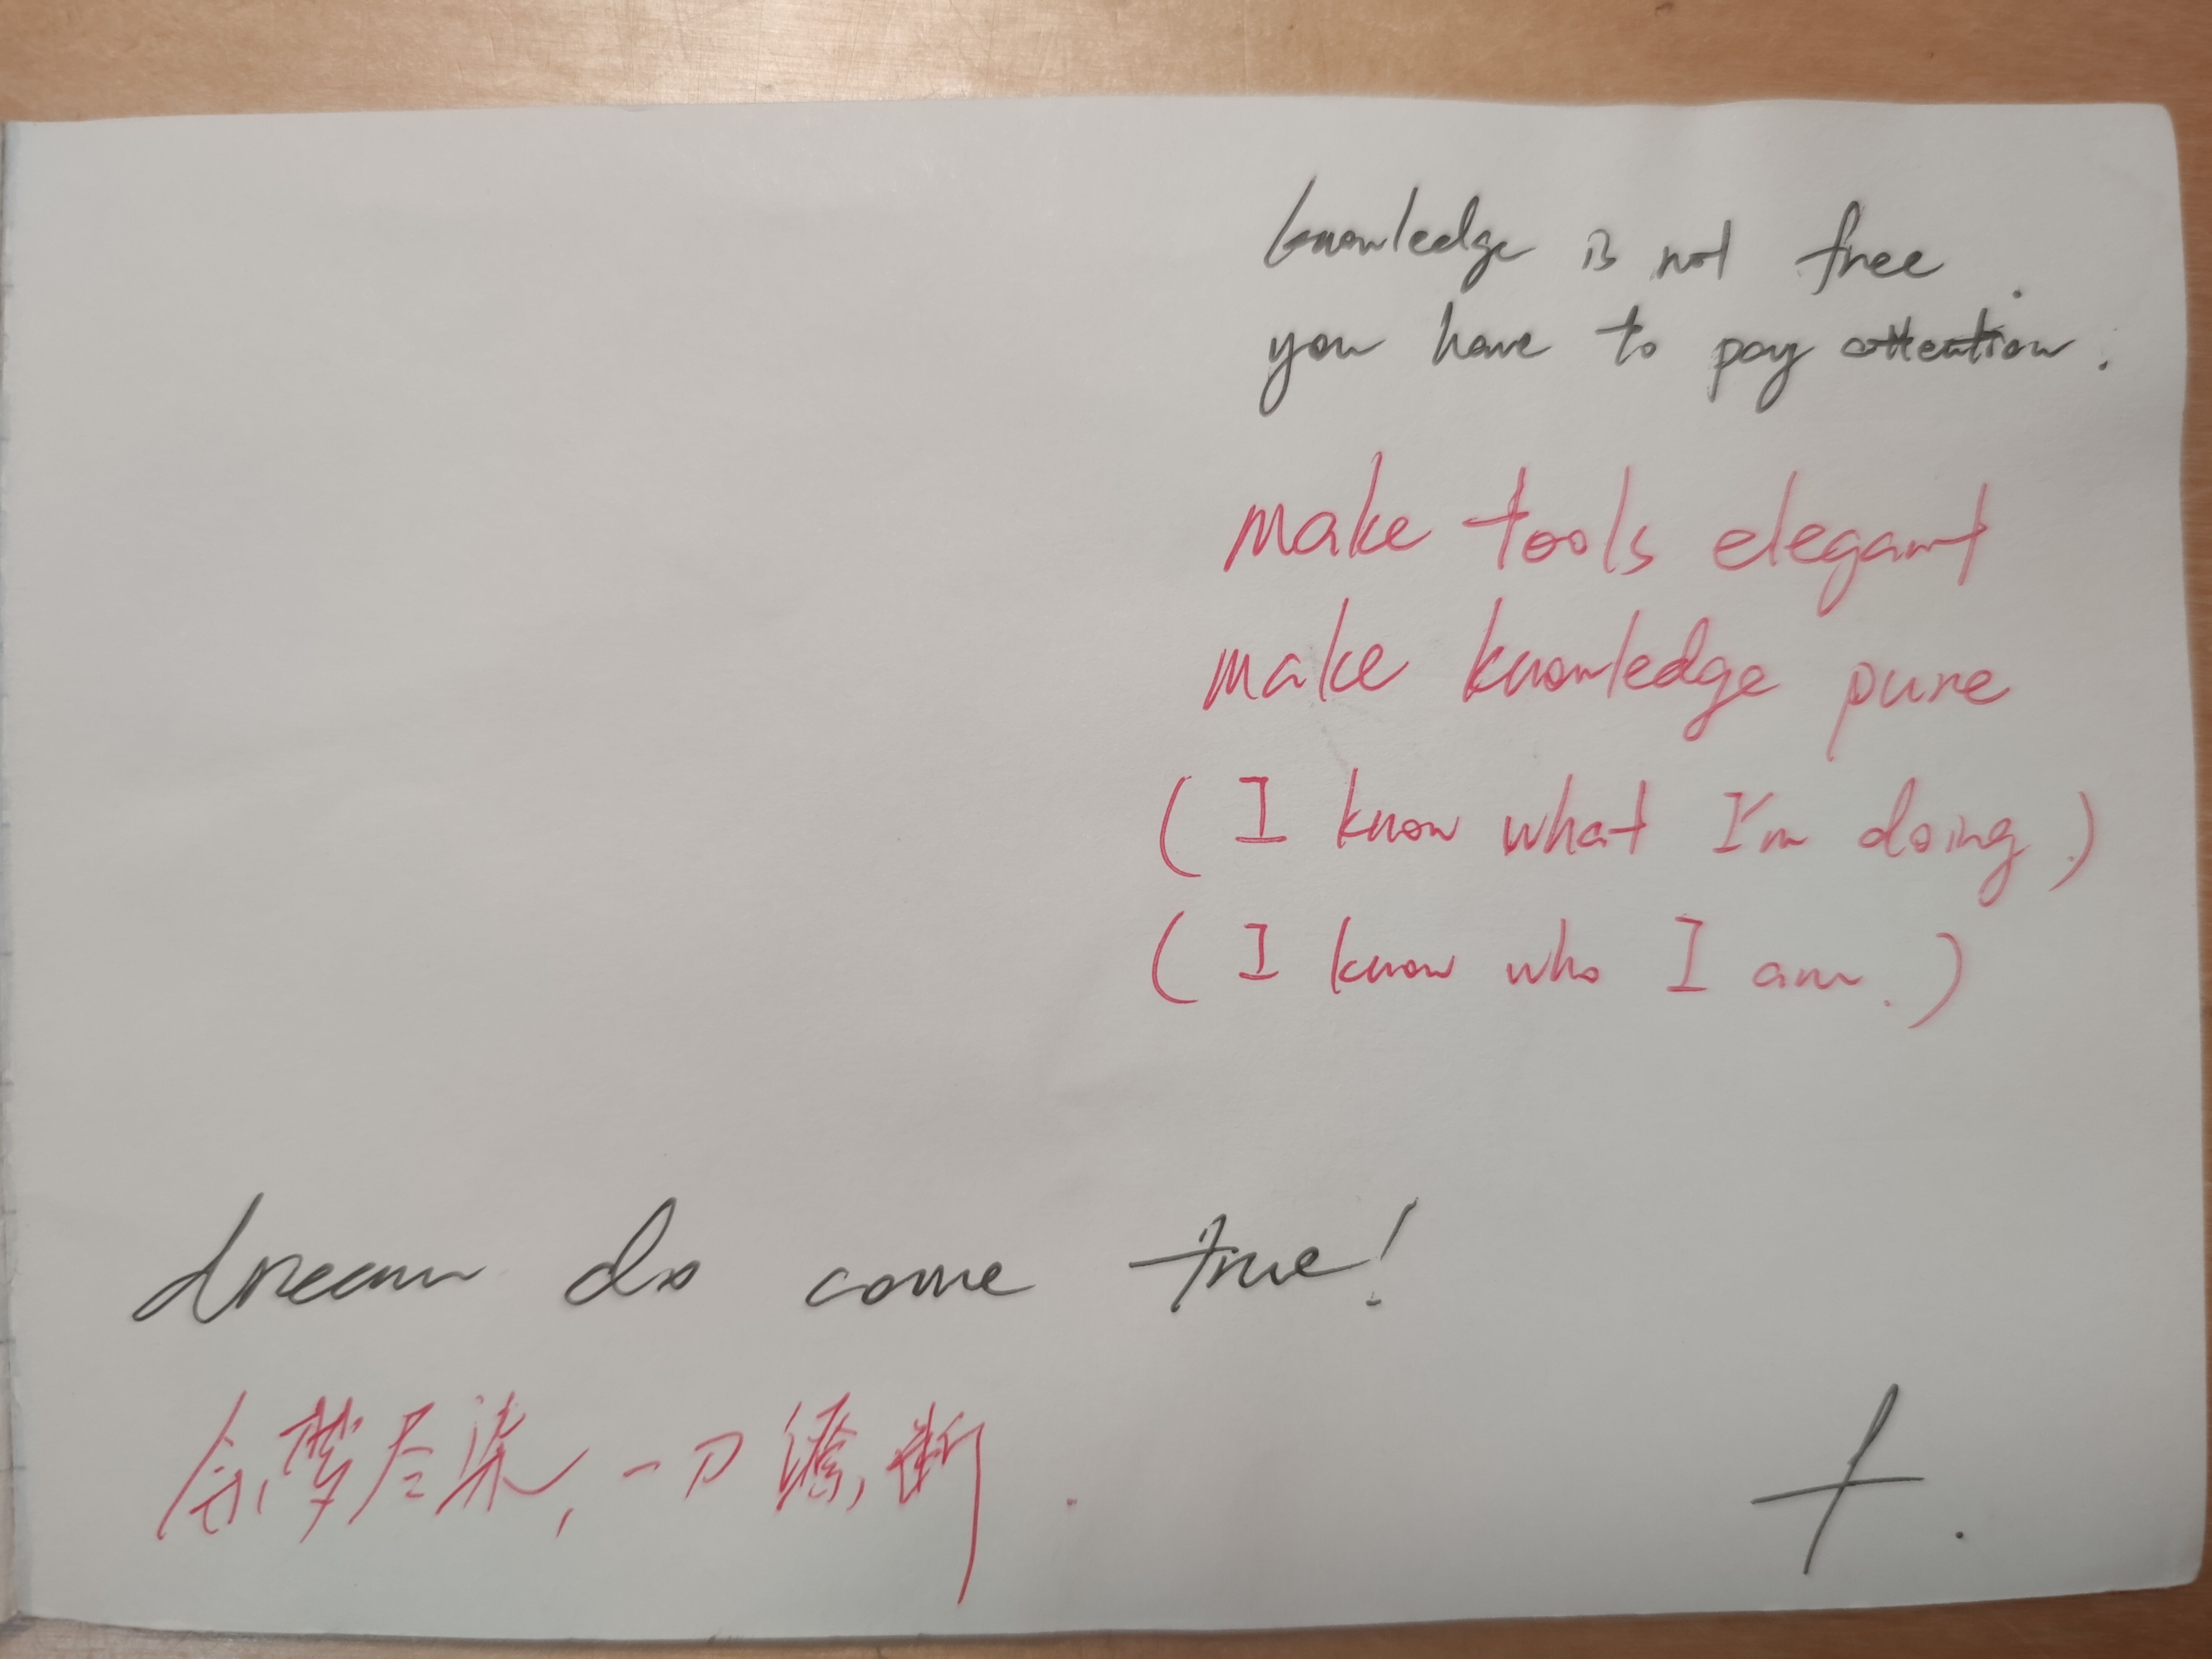 knowledge is not free.
you have to pay attention.
make tools elegant
make knowledge pure
(I know what I'm doing.)
(I know who I am.)
dream do come true!
尽染,一刀 断.